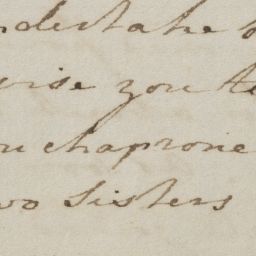 ndertake
vise you te
u chaprone
wo Sisters